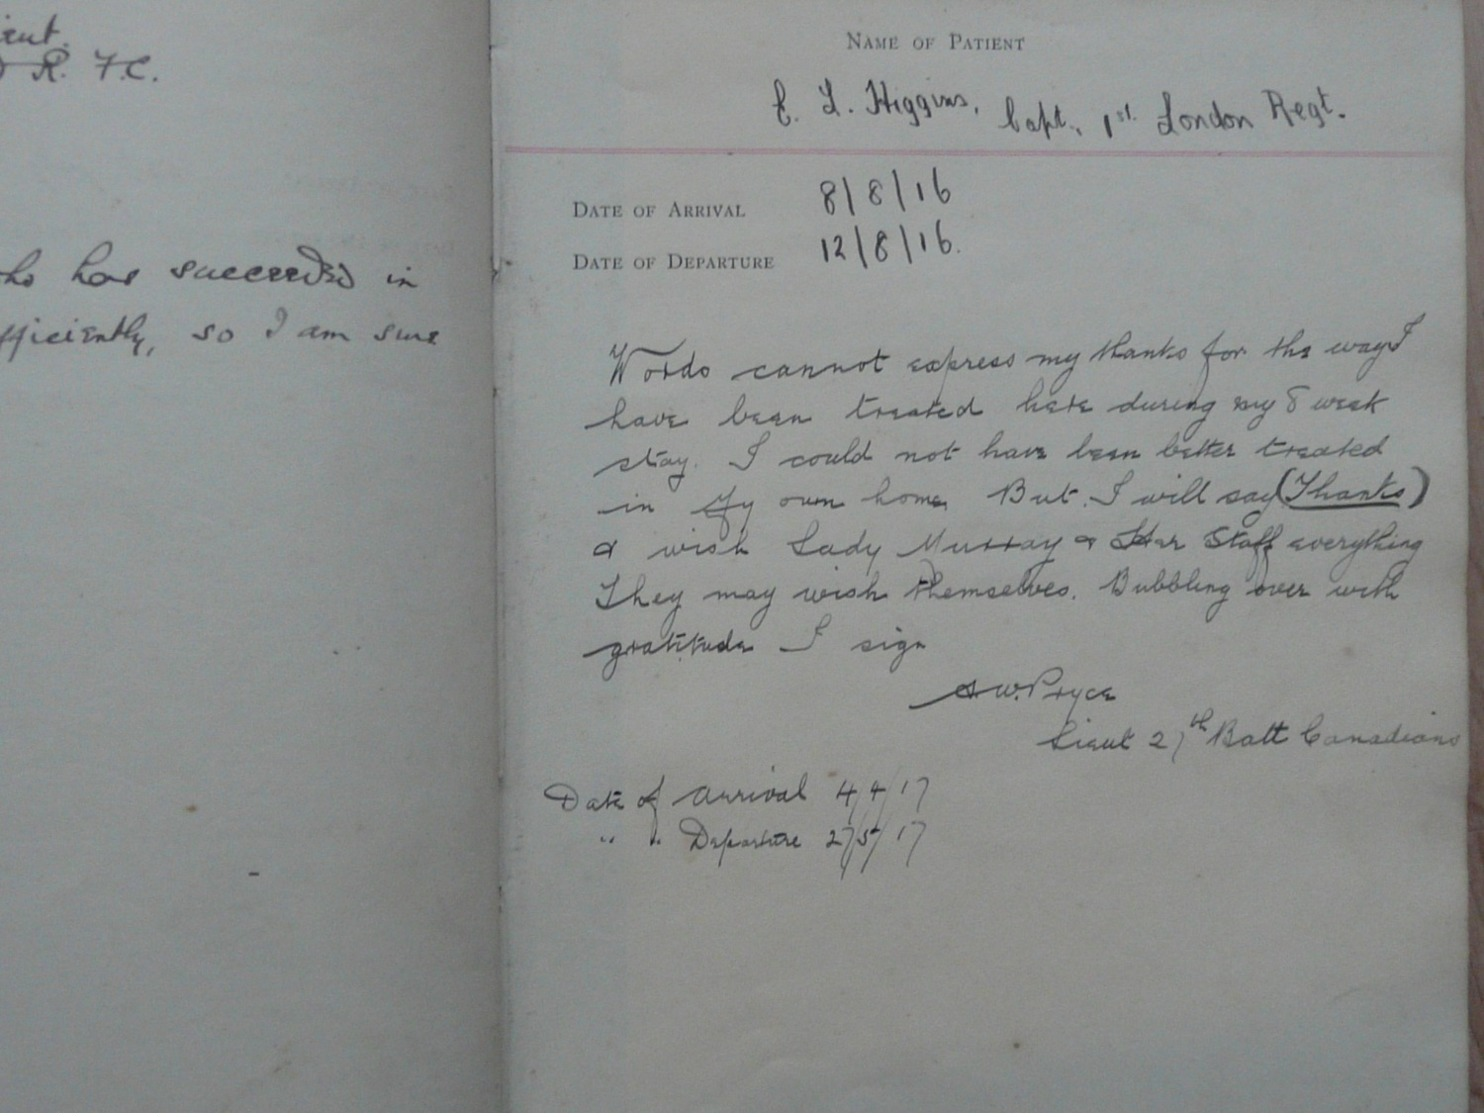 R. F.C.
has succeeded in
so I am sure
NAME OF PATIENT
E. L. Higgins, Capt., 1st. London Regt.
DATE OF ARRIVAL 8/8/16
DATE OF DEPARTURE 12/8/16.
Words cannot express my thanks for the way I
have been treated here during my 8 week
stay. I could not have been better treated
in My own home. But I will say (Thanks)
& wish Lady Murray & Her Staff everything
They may wish themselves. Bubbling over with
gratitude I sign
A.W. Pryce
Lieut 27th Batt Canadians
Date of Arrival 4/4/17
" " Departure 27/5/17